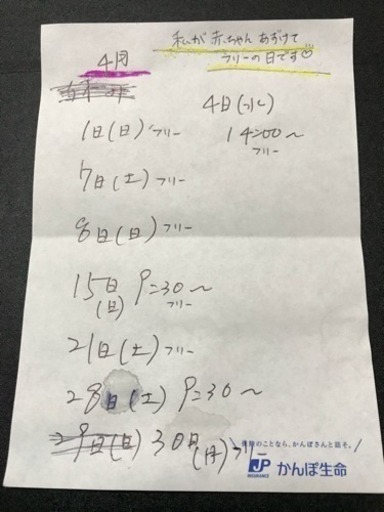 4月
私が赤ちゃんあずけて
フリーの日です
4日(水)
14:00〜
フリー
1日(日)フリー
7日(土)フリー
8日(日)フリー
15日 9:30〜
(日) フリー
21日(土)フリー
28日(土) 9:30〜
29日(日) 30日(月)フリー
保険のことなら、かんぽさんと話そ。
JP
INSURANCE
かんぽ生命